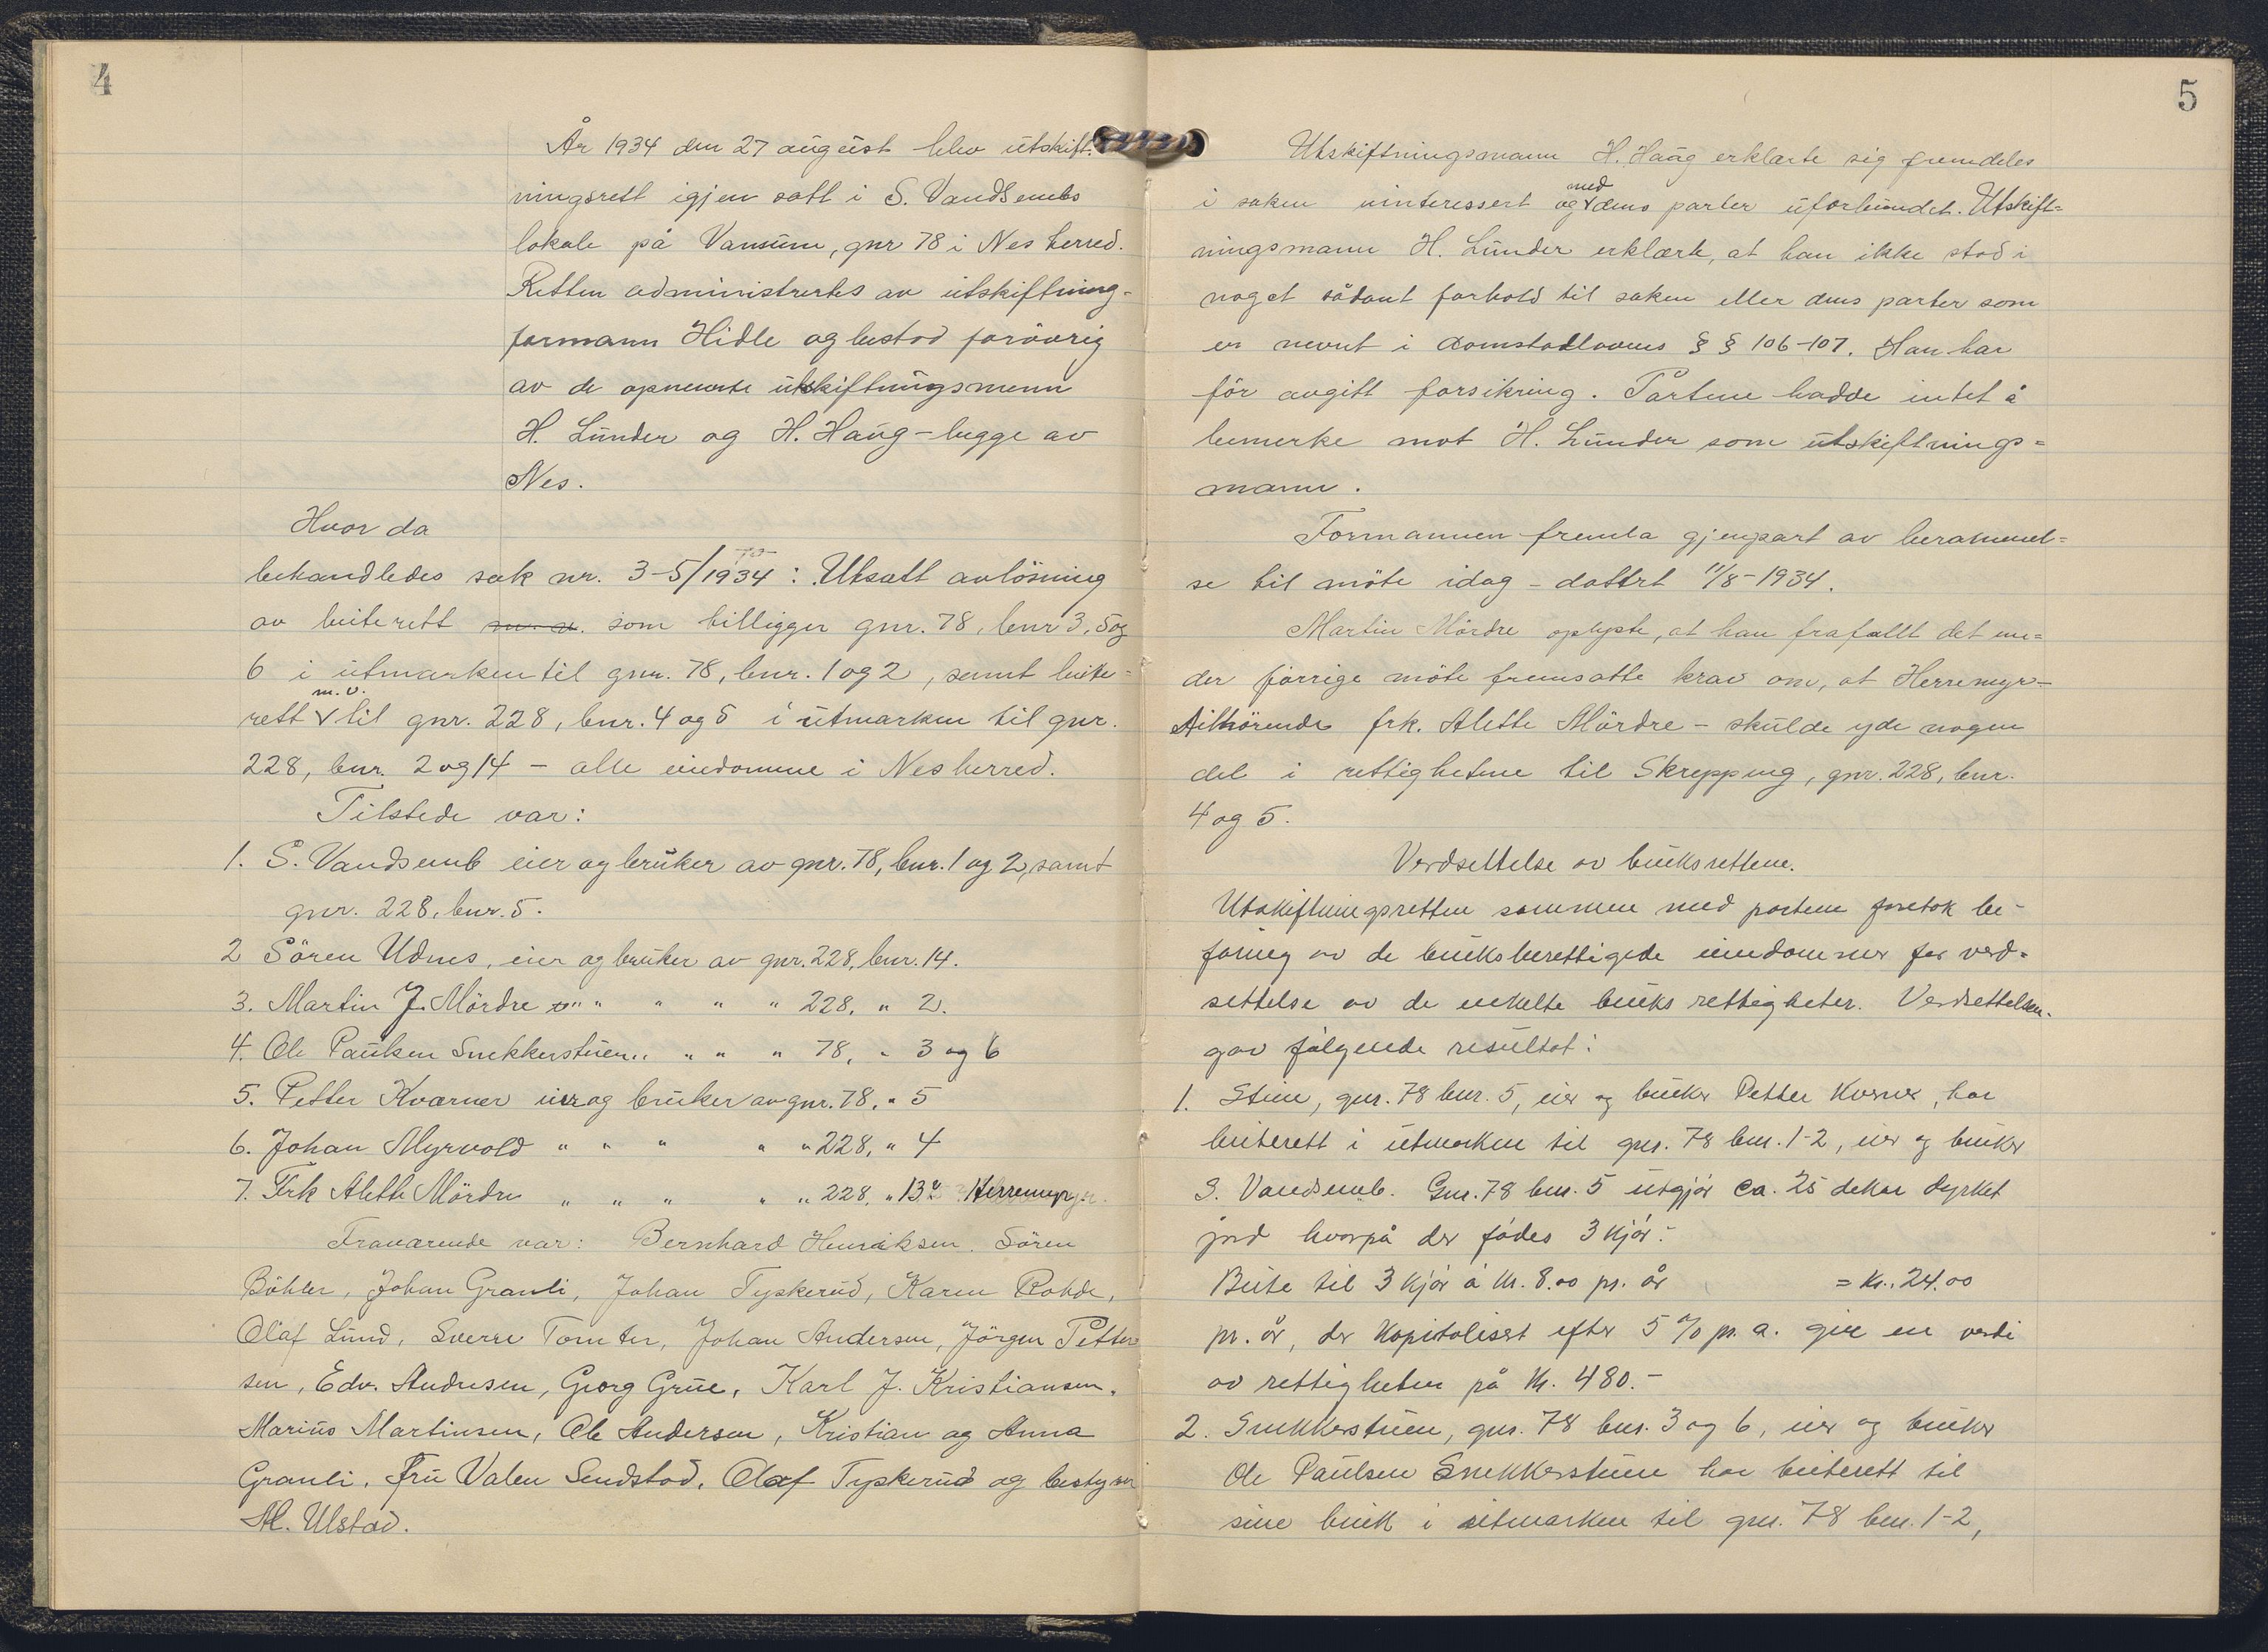 4
År 1934 den 27 august blev utskift-
ningsrett igjen satt i S. Vandsembs
lokale på Vansum, gnr 78 i Nes herred.
Retten administrertes av utskiftning-
formann Hidle og bestod forövrig
av de opnevnte utskiftningsmenn
H. Lunder og H. Haug - begge av
Nes.
Hvor da
behandledes sak nr. 3-5/1934: Utsatt avlösning
av beiterett som tilligger gnr. 78, bnr 3, 5 og
6 i utmarken til gnr. 78, bnr. 1 og 2, samt beite-
rett m.v. til gnr. 228, bnr. 4 og 5 i utmarken til gnr.
228, bnr. 2 og 14 - alle eiendomme i Nes herred.
Tilstede var:
1. S. Vandsemb eier og bruker av gnr. 78, bnr. 1 og 2, samt
gnr. 228, bnr. 5.
2 Sören Udnes, eier og bruker av gnr. 228, bnr. 14.
3. Martin J. Mördre " " " " " 228, " 2.
4. Ole Paulsen Snekkerstuen " " " " 78, " 3 og 6
5. Petter Kværner eier og bruker av gnr. 78, " 5
6. Johan Myrvold " " " " " 228, " 4
7. Frk Alette Mördre " " " " " 228, " 13 Herremyr
Fraværende var: Bernhard Henriksen, Sören
Böhler, Johan Granli, Johan Tyskerud, Karen Rohde,
Olaf Lund, Sverre Tomter, Johan Andersen, Jörgen Petter
sen, Edv. Andresen, Georg Grue, Karl J. Kristiansen,
Marius Martinsen, Ole Andersen, Kristian og Anna
Granli, Fru Valen Sendstad, Olaf Tyskerud og bestyrer
M. Ulstad.
5
Utskiftningsmann H. Haug erklærte sig fremdeles
i saken uinteressert og med dens parter uforbundet. Utskift=
ningsmann H. Lunder erklærte, at han ikke stod i
noget sådant forhold til saken eller dens parter som
er nevnt i domstollovens § § 106-107. Han har
för avgitt forsikring. Partene hadde intet å
bemerke mot H. Lunder som utskiftnings=
mann.
Formannen fremla gjenpart av berammel=
se til möte idag - datert 11/8-1934.
Martin Mördre oplyste, at han frafallt det un=
der forrige möte fremsatte krav om, at Herremyr-
tilhörende frk. Alette Mördre - skulde yde nogen
del i rettighetene til Skrepping, gnr. 228, bnr.
4 og 5.
Verdsettelse av bruksrettene.
Utskiftningsretten sammen med partene foretok be-
faring av de bruksberettigede eiendommer for verd=
settelse av de enkelte bruks rettigheter. Verdsettelsen
gav følgende resultat:
1. Stine, gnr. 78 bnr. 5, eier og bruker Petter Kverner, har
beiterett i utmarken til gnr. 78 bnr. 1-2, eier og bruker
S. Vandsemb. Gnr. 78 bnr. 5 utgjør ca. 25 dekar dyrket
jord hvorpå der fødes 3 kjør.-
Beite til 3 kjør à kr. 8.00 pr. år = kr. 24.00
pr. år, der kapitalisert efter 5 % p. a. gir en verdi
av rettigheten på kr. 480.-
2. Snekkerstuen, gnr. 78 bnr. 3 og 6, eier og bruker
Ole Paulsen Snekkerstuen har beiterett til
sine bruk i utmarken til gnr. 78 bnr. 1-2,